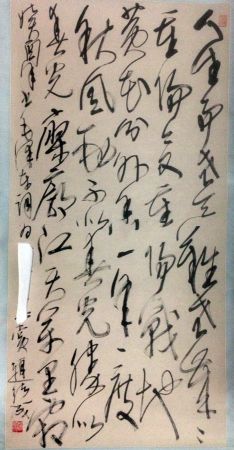 人生易老天難老歲〻
重陽今又重陽戰地
黄花分外香一年一度
秋風勁不似春光勝似
春光寥廓江天萬里霜
書毛澤東詞